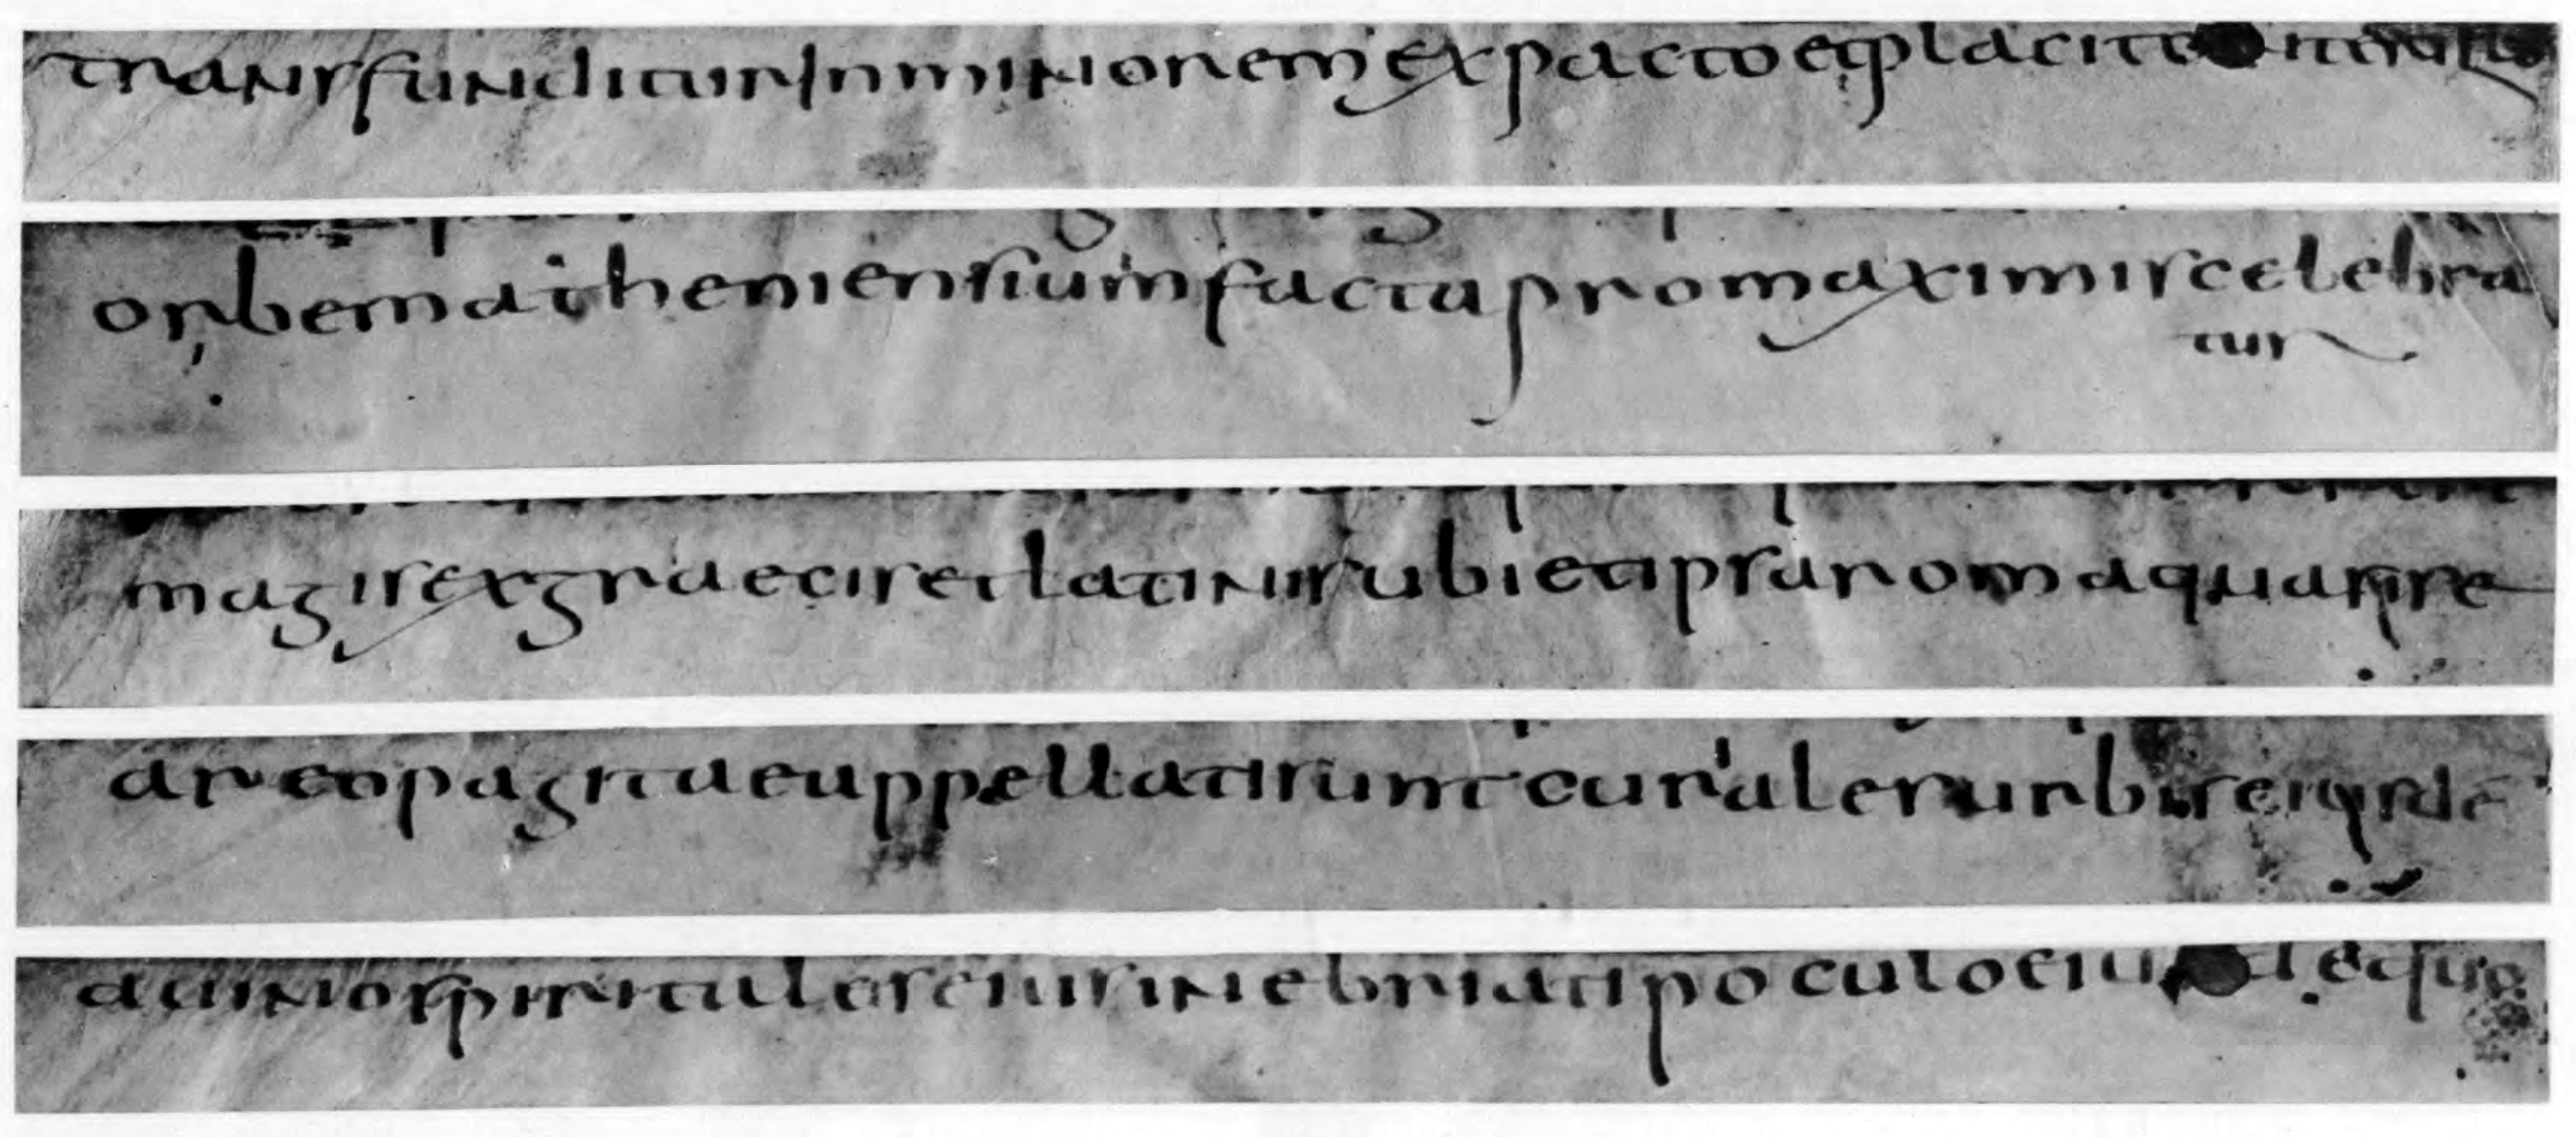 transfunditur in minionem ex pacto et placito
orbem atheniensium facta pro maximis celebra
tur
magis ex graecis et latinis ubi et ipsa roma quas pre
areopagitae appellati sunt curiales urbis
ac uino spiritales eius inebriati poculo eius de quo